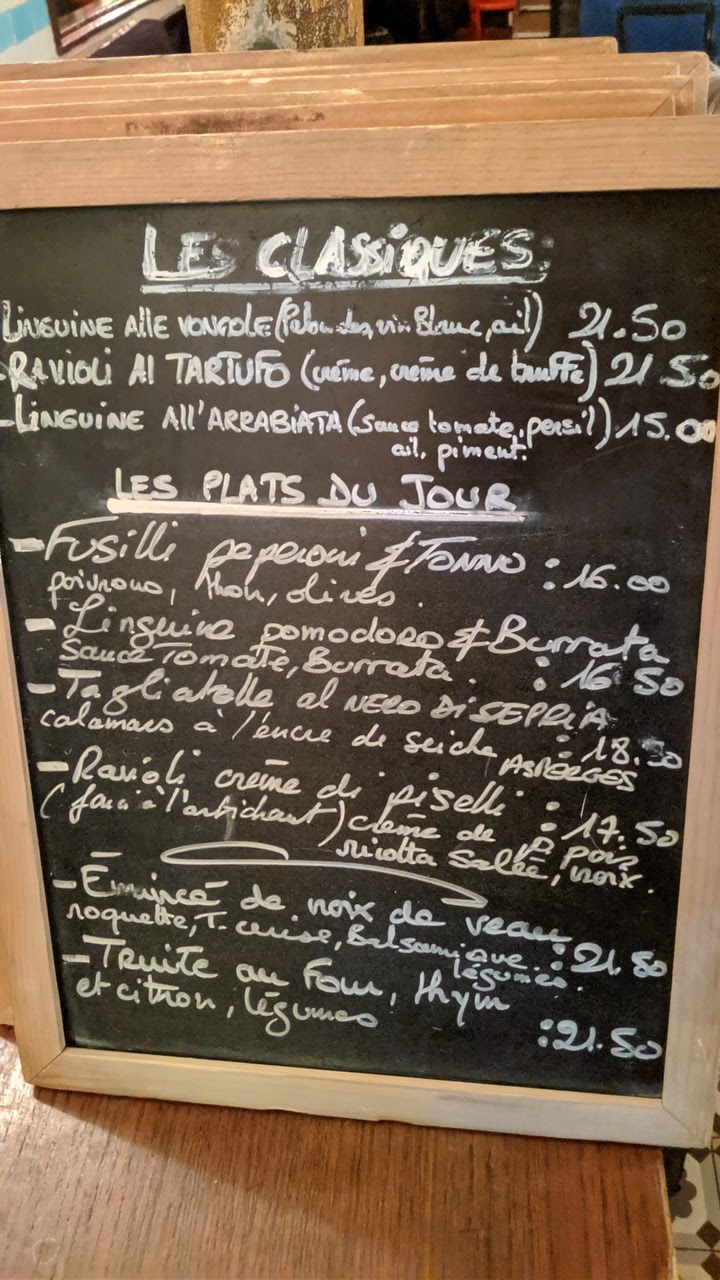 LES CLASSIQUES
LINGUINE AllE VONGOLE (Palourdes, vin Blanc, ail) 21.50
-RAVIOLI Al TARTUFO (crème, crème de truffe) 21.50
-LINGUINE All'ARRABIATA (sauce tomate, persil) 15.00
ail, piment.
LES PLATS DU JOUR
- Fusilli peperoni & TONNO : 16.00
poivrons, thon, olives.
- Linguine pomodoro & Burrata
Sauce Tomate, Burrata. : 16.50
- Tagliatelle al NERO DI SEPPIA
calamars à l'encre de seiche : 18.50
ASPERGES
- Ravioli crème di piselli : 17.50
(farci à l'artichaut) crème de p. pois
ricotta salée, noix.
- Émincé de noix de veau
roquette, T. cerise, Balsamique : 21.50
légumes.
- Truite au Four, thym
et citron, légumes
: 21.50